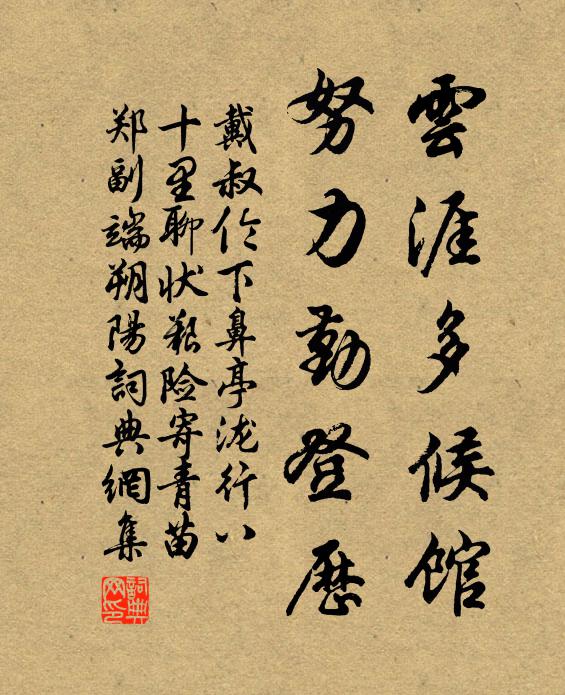 雲涯多候館
努力勤登歷
戴叔伦下鼻亭泷行八
十里聊状艰险寄青苗
郑副端朔陽詞典網集
詞典网印